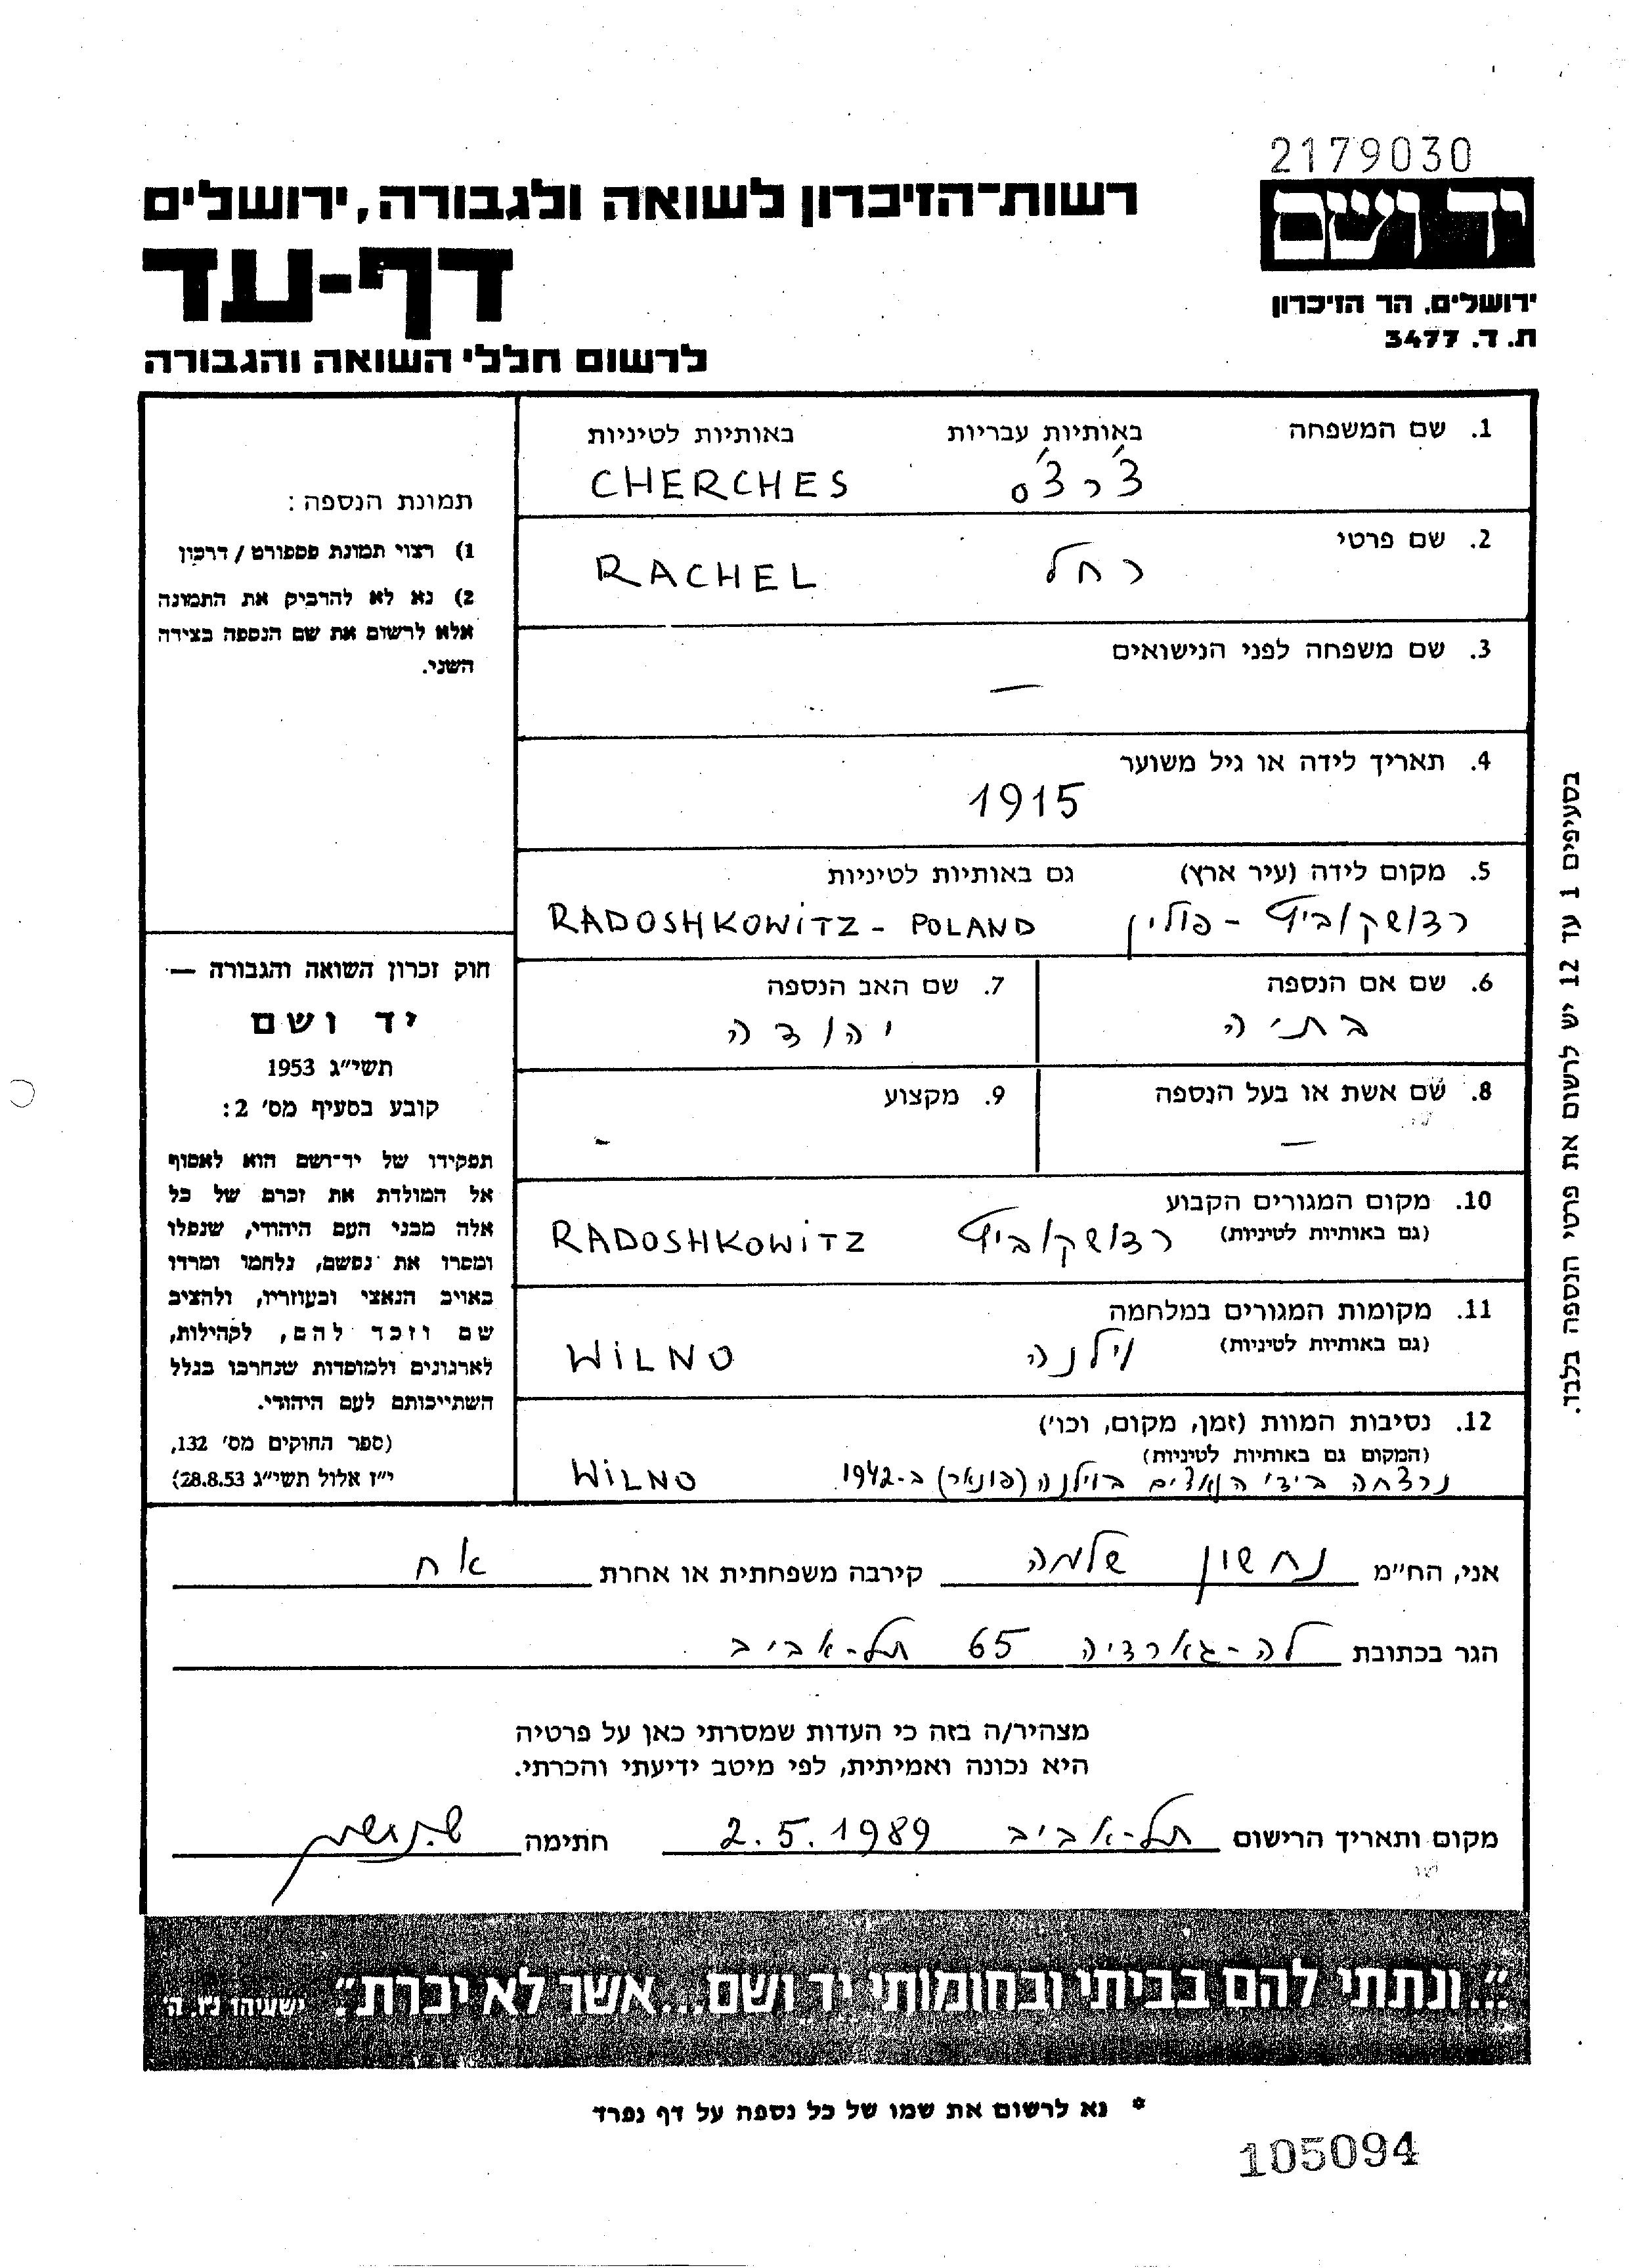 2179030
יד ושם
רשות־הזיכרון לשואה ולגבורה, ירושלים
דף-עד
ירושלים, הר הזיכרון
ת. ד. 3477
לרשום חללי השואה והגבורה
1. שם המשפחה באותיות עבריות באותיות לטיניות
צ'רצ'ס CHERCHES
2. שם פרטי
רחל RACHEL
3. שם משפחה לפני הנישואים
—
4. תאריך לידה או גיל משוער
1915
5. מקום לידה (עיר ארץ) גם באותיות לטיניות
רדושקוביץ - פולין RADOSHKOWITZ - POLAND
6. שם אם הנספה 7. שם האב הנספה
בתיה יהודה
8. שם אשת או בעל הנספה 9. מקצוע
— -
10. מקום המגורים הקבוע
(גם באותיות לטיניות) רדושקוביץ RADOSHKOWITZ
11. מקומות המגורים במלחמה
(גם באותיות לטיניות) וילנה WILNO
12. נסיבות המוות (זמן, מקום, וכו')
(המקום גם באותיות לטיניות)
נרצחה בידי הנאצים בוילנה (פונאר) ב-1942. WILNO
תמונת הנספה:
1) רצוי תמונת פספורט / דרכון
2) נא לא להדביק את התמונה
אלא לרשום את שם הנספה בצידה
השני.
חוק זכרון השואה והגבורה —
יד ושם
תשי״ג 1953
קובע בסעיף מס׳ 2:
תפקידו של יד־ושם הוא לאסוף
אל המולדת את זכרם של כל
אלה מבני העם היהודי, שנפלו
ומסרו את נפשם, נלחמו ומרדו
באויב הנאצי ובעוזריו, ולהציב
שם וזכר להם, לקהילות,
לארגונים ולמוסדות שנחרבו בגלל
השתייכותם לעם היהודי.
(ספר החוקים מס׳ 132,
י״ז אלול תשי״ג 28.8.53)
בסעיפים 1 עד 12 יש לרשום את פרטי הנספה בלבד.
אני, החי״מ נחשון שלמה קירבה משפחתית או אחרת אח
הגר בכתובת לה-גארדיה 65 תל-אביב
מצהיר/ה בזה כי העדות שמסרתי כאן על פרטיה
היא נכונה ואמיתית, לפי מיטב ידיעתי והכרתי.
מקום ותאריך הרישום תל-אביב 2.5.1989 חתימה
״...ונתתי להם בביתי ובחומותי יד ושם...אשר לא יכרת״ ישעיהו נו, ה
* נא לרשום את שמו של כל נספה על דף נפרד
105094